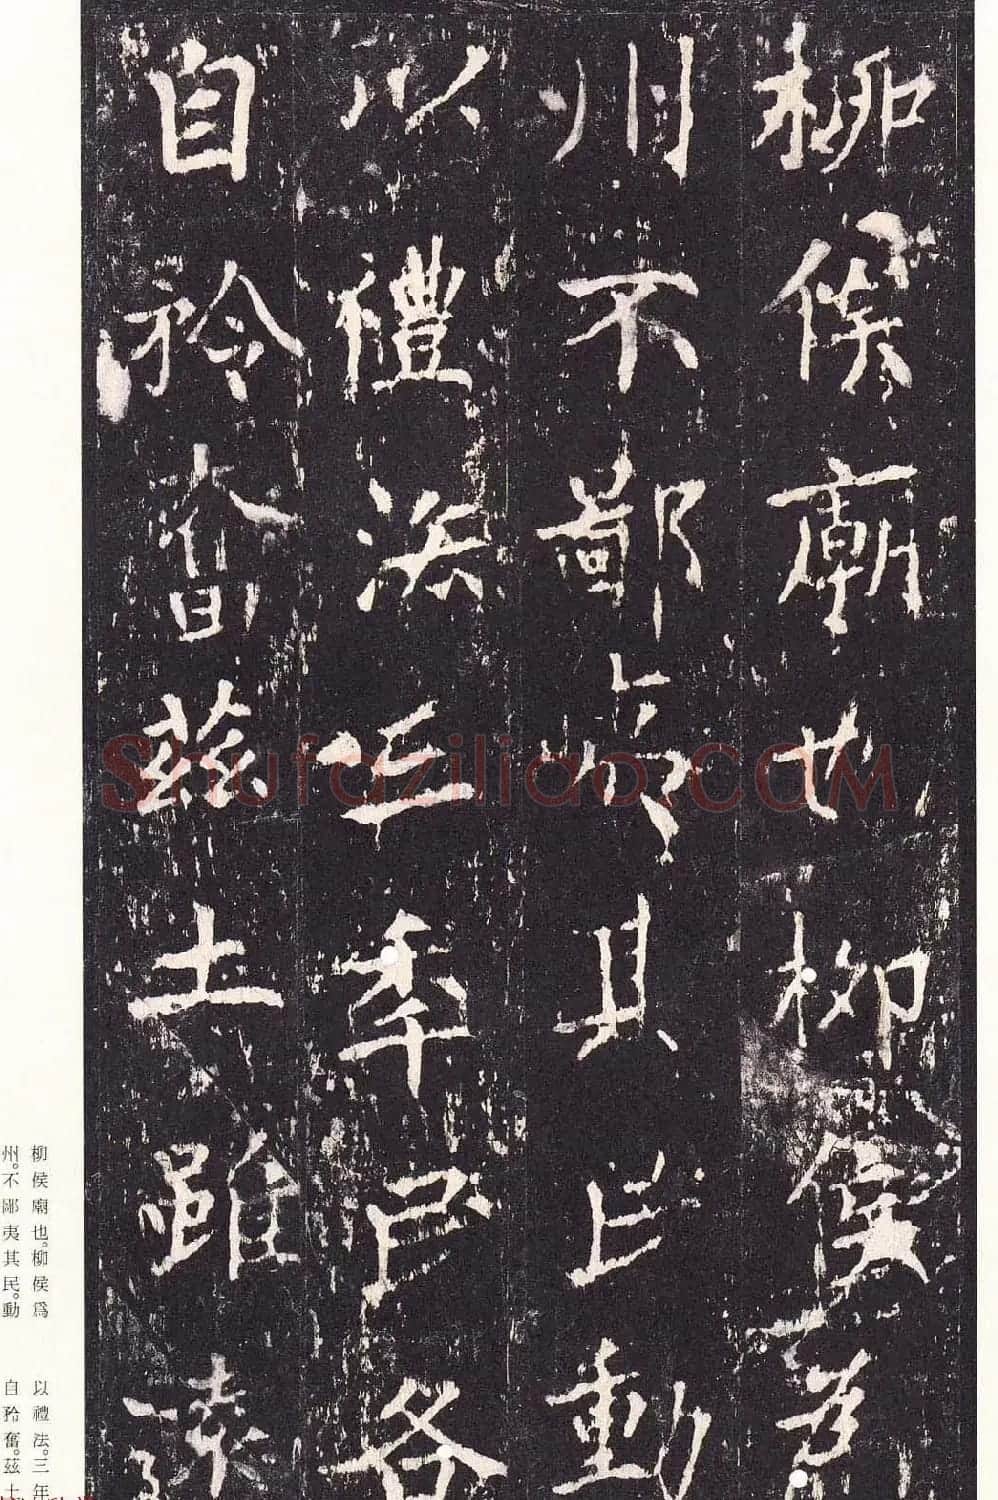 柳侯廟也柳侯為
州不鄙夷其民動
以禮法三年民各
自矜奮茲土雖遠
柳侯廟也。柳侯爲
州。不鄙夷其民。動
以禮法。三年
自矜奮。茲土
shufaziliao.com